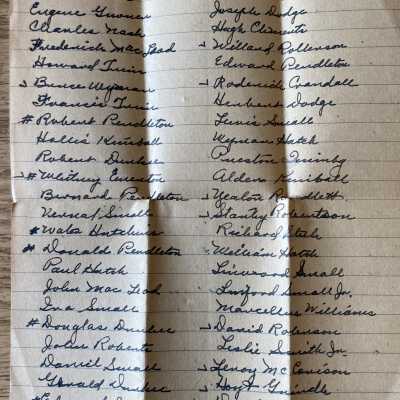 Eugene
Charles Nash
Frederick MacLeod
Howard
✓ Bruce Wyman
Francis
# Robert Pendleton
Hollis Kimball
Robert Dunbar
✓ # Whitney
Bernard Pendleton
Verna Small
# Hutchins
# Donald Pendleton
Paul Hatch
John MacLeod
Ina Small
# Douglas
John Roberts
Daniel Small
Gerald
Joseph Dodge
Hugh Clements
✓ Willard Robinson
Edward Pendleton
✓ Roderick Crandall
Herbert Dodge
Lewis Small
Wyman Hatch
Preston Quimby
Alden Kimball
✓ Rowlett
✓ Stanley Robertson
Richard
William Hatch
Linwood Small
Small Jr.
Marcellus Williams
✓ David Robinson
Leslie Smith Jr.
✓ Leroy
✓ Hoyt Grindle